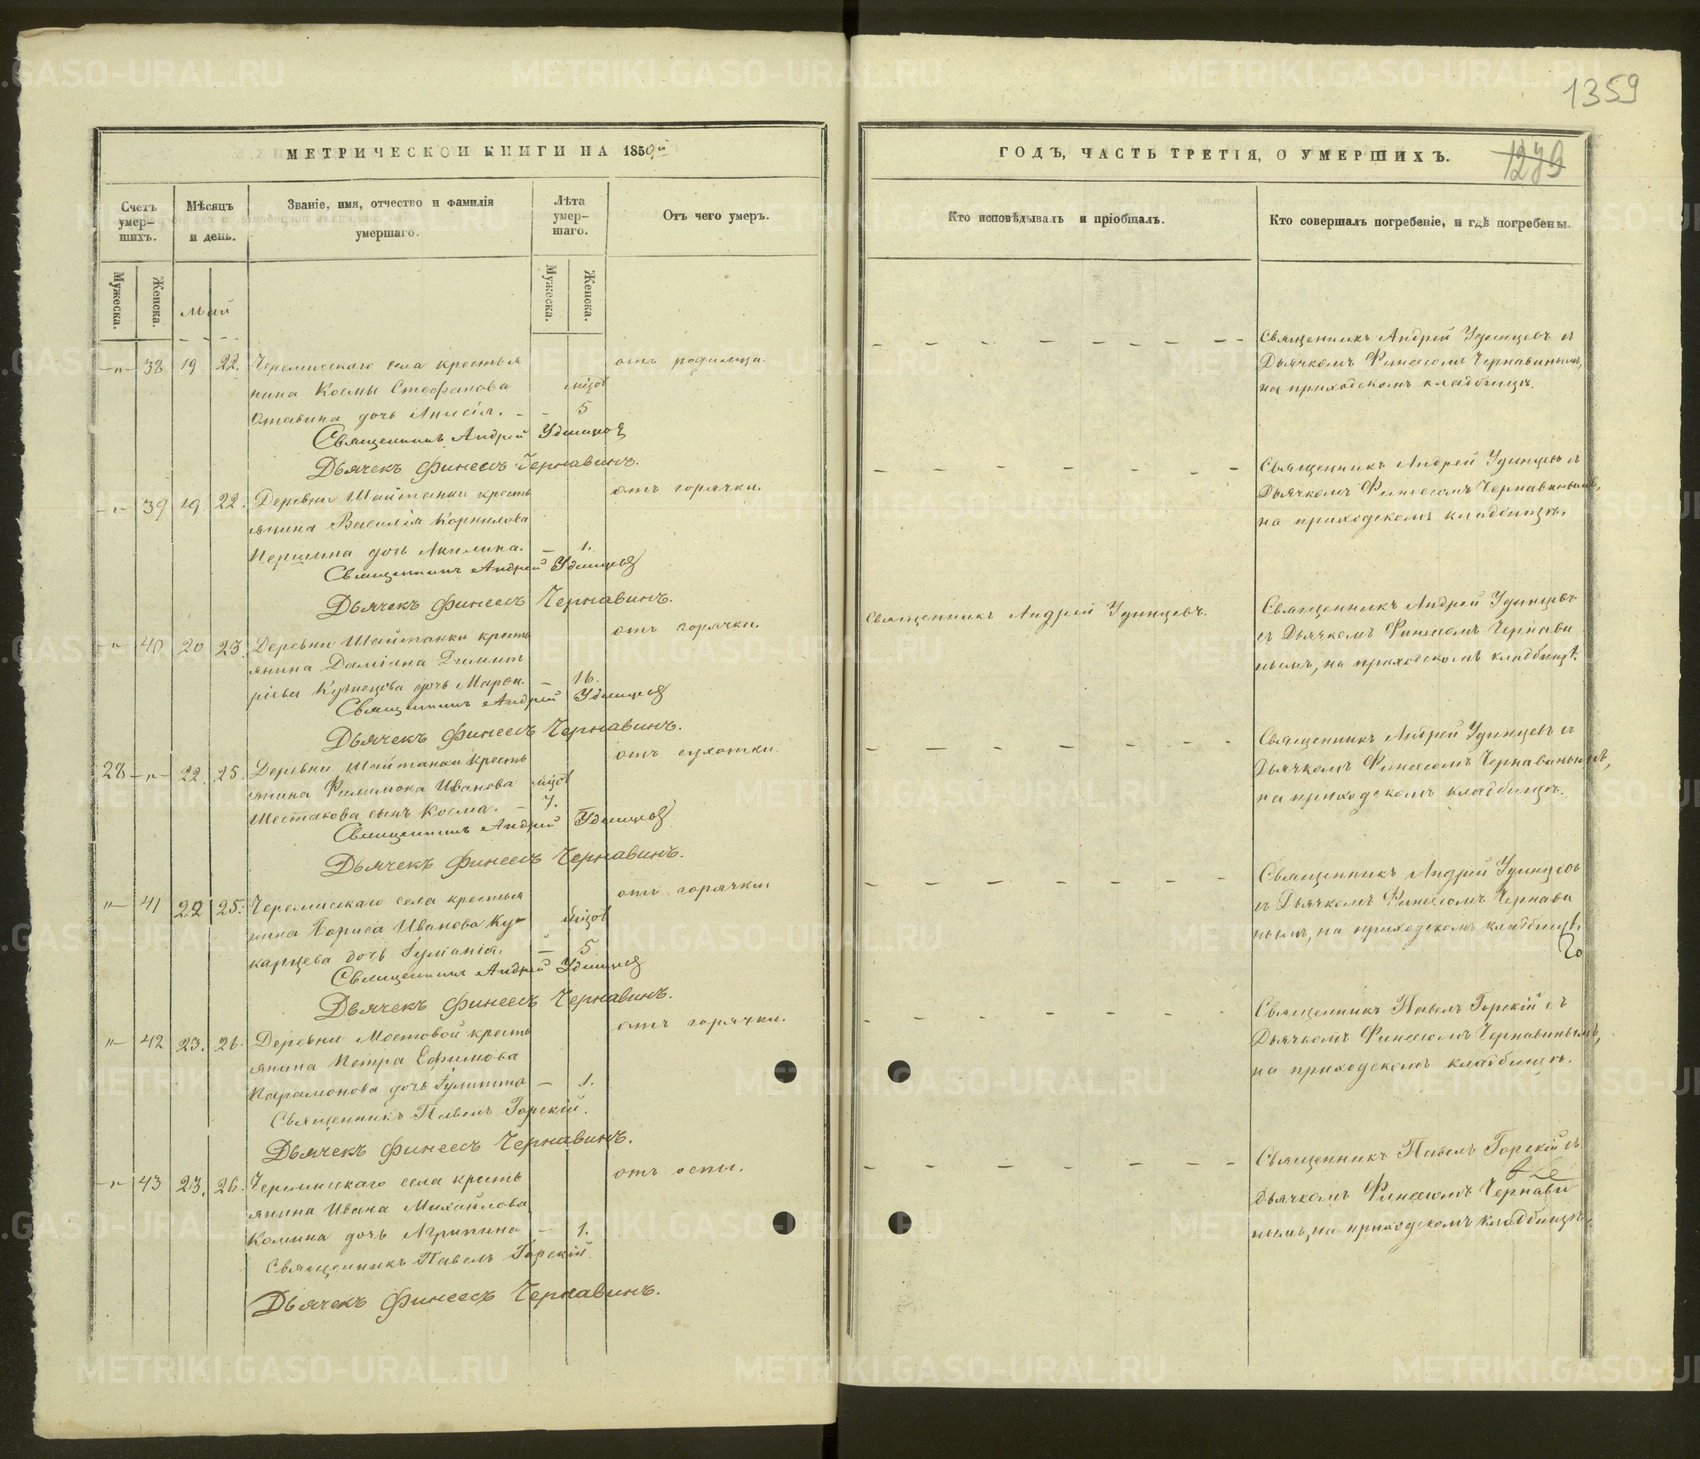 1359
МЕТРИЧЕСКОЙ КНИГИ НА 185
ГОДЪ, ЧАСТЬ ТРЕТІЯ, О УМЕРШИХЪ.
Счетъ умер-
шихъ.
Мѣсяцъ
и день.
Званіе, имя, отчество и фамилія
умершаго.
Лѣта
умер-
шаго.
Отъ чего умеръ.
Кто исповѣдывалъ и пріобщалъ.
Кто совершалъ погребеніе, и гдѣ погребены.
Мужеска.
Женска.
Май
Мужеска.
Женска.
-"- 38 19 22. Черемисскаго села крестья
нина Космы Стефанова
дочь Анисія. - - 5
отъ родимца.
Священникъ Андрей Удинцовъ
Дьячекъ Финеесъ Чернавинъ.
Священникъ Андрей Удинцевъ съ
Дьячкомъ Финеесомъ Чернавинымъ,
на приходскомъ кладбищѣ.
-"- 39 19 22. Деревни Шайтанки кресть
янина Василія Корнилова
Першина дочь Акилина. - 1.
отъ горячки.
Священникъ Андрей Удинцовъ
Дьячекъ Финеесъ Чернавинъ.
Священникъ Андрей Удинцевъ съ
Дьячкомъ Финеесомъ Чернавинымъ,
на приходскомъ кладбищѣ.
-"- 40 20 23. Деревни Шайтанки кресть
янина Даміана Димит
ріева Кузнецова дочь Марѳа. - 16.
отъ горячки.
Священникъ Андрей Удинцовъ
Дьячекъ Финеесъ Чернавинъ.
Священникъ Андрей Удинцевъ.
Священникъ Андрей Удинцевъ
съ Дьячкомъ Финеесомъ Чернави
нымъ, на приходскомъ кладбищѣ.
28 -"- 22. 25. Деревни Шайтанки кресть
янина Филимона Иванова
Шестакова сынъ Косма. - 7.
отъ сухотки.
Священникъ Андрей Удинцовъ
Дьячекъ Финеесъ Чернавинъ.
Священникъ Андрей Удинцевъ съ
Дьячкомъ Финеесомъ Чернавинымъ,
на приходскомъ кладбищѣ.
"- 41 22 25. Черемисскаго села крестья
нина Бориса Иванова Ку-
карцева дочь - 5
отъ горячки.
Священникъ Андрей Удинцовъ
Дьячекъ Финеесъ Чернавинъ.
Священникъ Андрей Удинцевъ
съ Дьячкомъ Финеесомъ Чернави
нымъ, на приходскомъ кладбищѣ.
"- 42 23. 26. Деревни Мостовой кресть
янина Петра Ефимова
Парамонова дочь - 1.
отъ горячки.
Священникъ Павелъ Горскій.
Дьячекъ Финеесъ Чернавинъ.
Священникъ Павелъ Горскій съ
Дьячкомъ Финеесомъ Чернавинымъ,
на приходскомъ кладбищѣ.
-"- 43 23. 26. Черемисскаго села кресть
янина Ивана Михайлова
Комина дочь Агрипина - 1.
отъ оспы.
Священникъ Павелъ Горскій.
Дьячекъ Финеесъ Чернавинъ.
Священникъ Павелъ Горскій съ
Дьячкомъ Финеесомъ Чернави
нымъ, на приходскомъ кладбищѣ.
METRIKI.GASO-URAL.RU